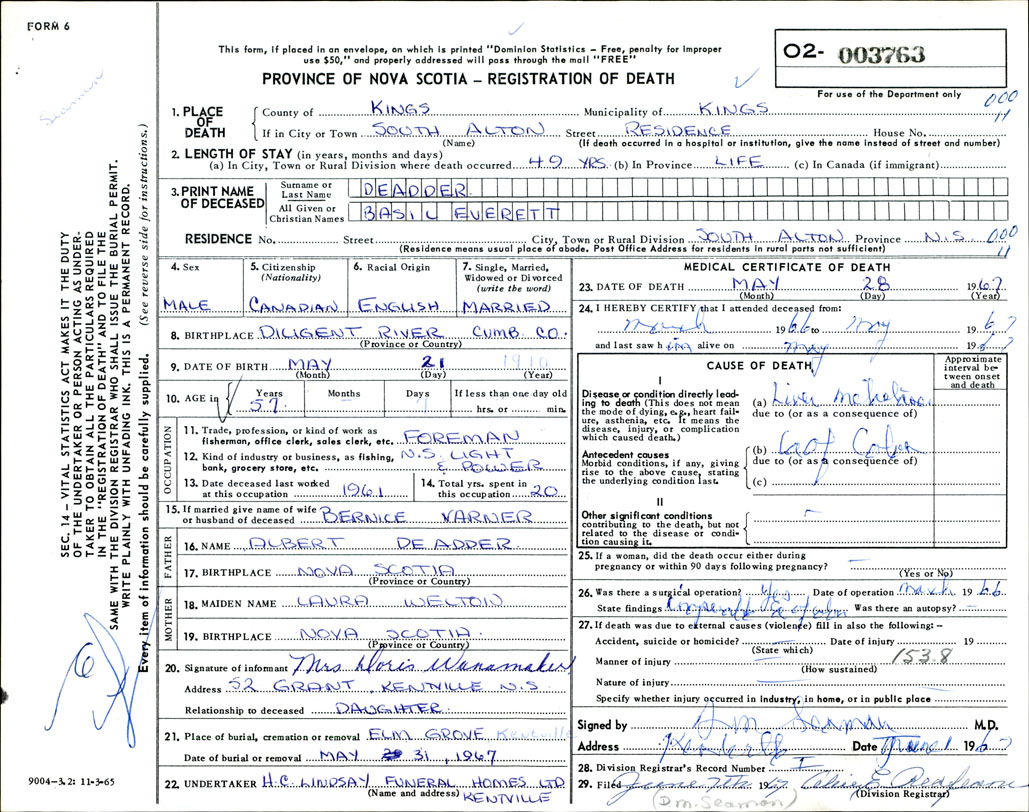 FORM 6
This form, if placed in an envelope, on which is printed "Dominion Statistics – Free, penalty for improper
use $50," and properly addressed will pass through the mail "FREE"
PROVINCE OF NOVA SCOTIA – REGISTRATION OF DEATH
02- 003763
For use of the Department only
Seaman
SEC. 14 – VITAL STATISTICS ACT MAKES IT THE DUTY
OF THE UNDERTAKER OR PERSON ACTING AS UNDER-
TAKER TO OBTAIN ALL THE PARTICULARS REQUIRED
IN THE "REGISTRATION OF DEATH" AND TO FILE THE
SAME WITH THE DIVISION REGISTRAR WHO SHALL ISSUE THE BURIAL PERMIT.
WRITE PLAINLY WITH UNFADING INK. THIS IS A PERMANENT RECORD.
Every item of information should be carefully supplied. (See reverse side for instructions.)
1. PLACE OF DEATH
County of KINGS Municipality of KINGS 000 11
If in City or Town SOUTH ALTON Street RESIDENCE House No.
(Name) (If death occurred in a hospital or institution, give the name instead of street and number)
2. LENGTH OF STAY (in years, months and days)
(a) In City, Town or Rural Division where death occurred 49 YRS. (b) In Province LIFE (c) In Canada (if immigrant)
3. PRINT NAME OF DECEASED
Surname or Last Name DEADDER
All Given or Christian Names BASIL EVERETT
RESIDENCE No. Street City, Town or Rural Division SOUTH ALTON Province N.S. 000 11
(Residence means usual place of abode. Post Office Address for residents in rural parts not sufficient)
4. Sex
MALE
5. Citizenship (Nationality)
CANADIAN
6. Racial Origin
ENGLISH
7. Single, Married, Widowed or Divorced (write the word)
MARRIED
8. BIRTHPLACE DILIGENT RIVER CUMB. CO.
(Province or Country)
9. DATE OF BIRTH MAY 21 1910
(Month) (Day) (Year)
10. AGE in Years Months Days If less than one day old
57 – 7 hrs. or min.
OCCUPATION
11. Trade, profession, or kind of work as
fisherman, office clerk, sales clerk, etc. FOREMAN
12. Kind of industry or business, as fishing, N.S. LIGHT
bank, grocery store, etc. & POWER
13. Date deceased last worked at this occupation 1961
14. Total yrs. spent in this occupation 20
15. If married give name of wife
or husband of deceased BERNICE VARNER
FATHER
16. NAME ALBERT DEADDER
17. BIRTHPLACE NOVA SCOTIA
(Province or Country)
MOTHER
18. MAIDEN NAME LAURA WELTON
19. BIRTHPLACE NOVA SCOTIA
(Province or Country)
20. Signature of informant Mrs Doris Wanamaker
Address 52 GRANT, KENTVILLE N.S.
Relationship to deceased DAUGHTER
21. Place of burial, cremation or removal ELM GROVE Kentville
Date of burial or removal MAY 31, 1967
22. UNDERTAKER H.C. LINDSAY FUNERAL HOMES LTD
(Name and address) KENTVILLE
9004-3.2: 11-3-65
MEDICAL CERTIFICATE OF DEATH
23. DATE OF DEATH MAY 28 1967
(Month) (Day) (Year)
24. I HEREBY CERTIFY that I attended deceased from:
March 1966 to May 1967
and last saw him alive on May 1967
CAUSE OF DEATH
Approximate interval between onset and death
I
Disease or condition directly lead-
ing to death (This does not mean
the mode of dying, e.g., heart fail-
ure, asthenia, etc. It means the
disease, injury, or complication
which caused death.)
(a) Liver
due to (or as a consequence of)
Antecedent causes
Morbid conditions, if any, giving
rise to the above cause, stating
the underlying condition last.
(b) Ca of Colon
due to (or as a consequence of)
(c)
II
Other significant conditions
contributing to the death, but not
related to the disease or condi-
tion causing it.
25. If a woman, did the death occur either during
pregnancy or within 90 days following pregnancy? –
(Yes or No)
26. Was there a surgical operation? Yes Date of operation March 1966
State findings Was there an autopsy? –
27. If death was due to external causes (violence) fill in also the following: –
Accident, suicide or homicide? Date of injury 19
(State which)
Manner of injury 153.8
(How sustained)
Nature of injury
Specify whether injury occurred in industry, in home, or in public place
Signed by Seaman M.D.
Address Date June 1 1967
28. Division Registrar's Record Number I
29. Filed June 1967
(Division Registrar)
(Dm. Seaman)